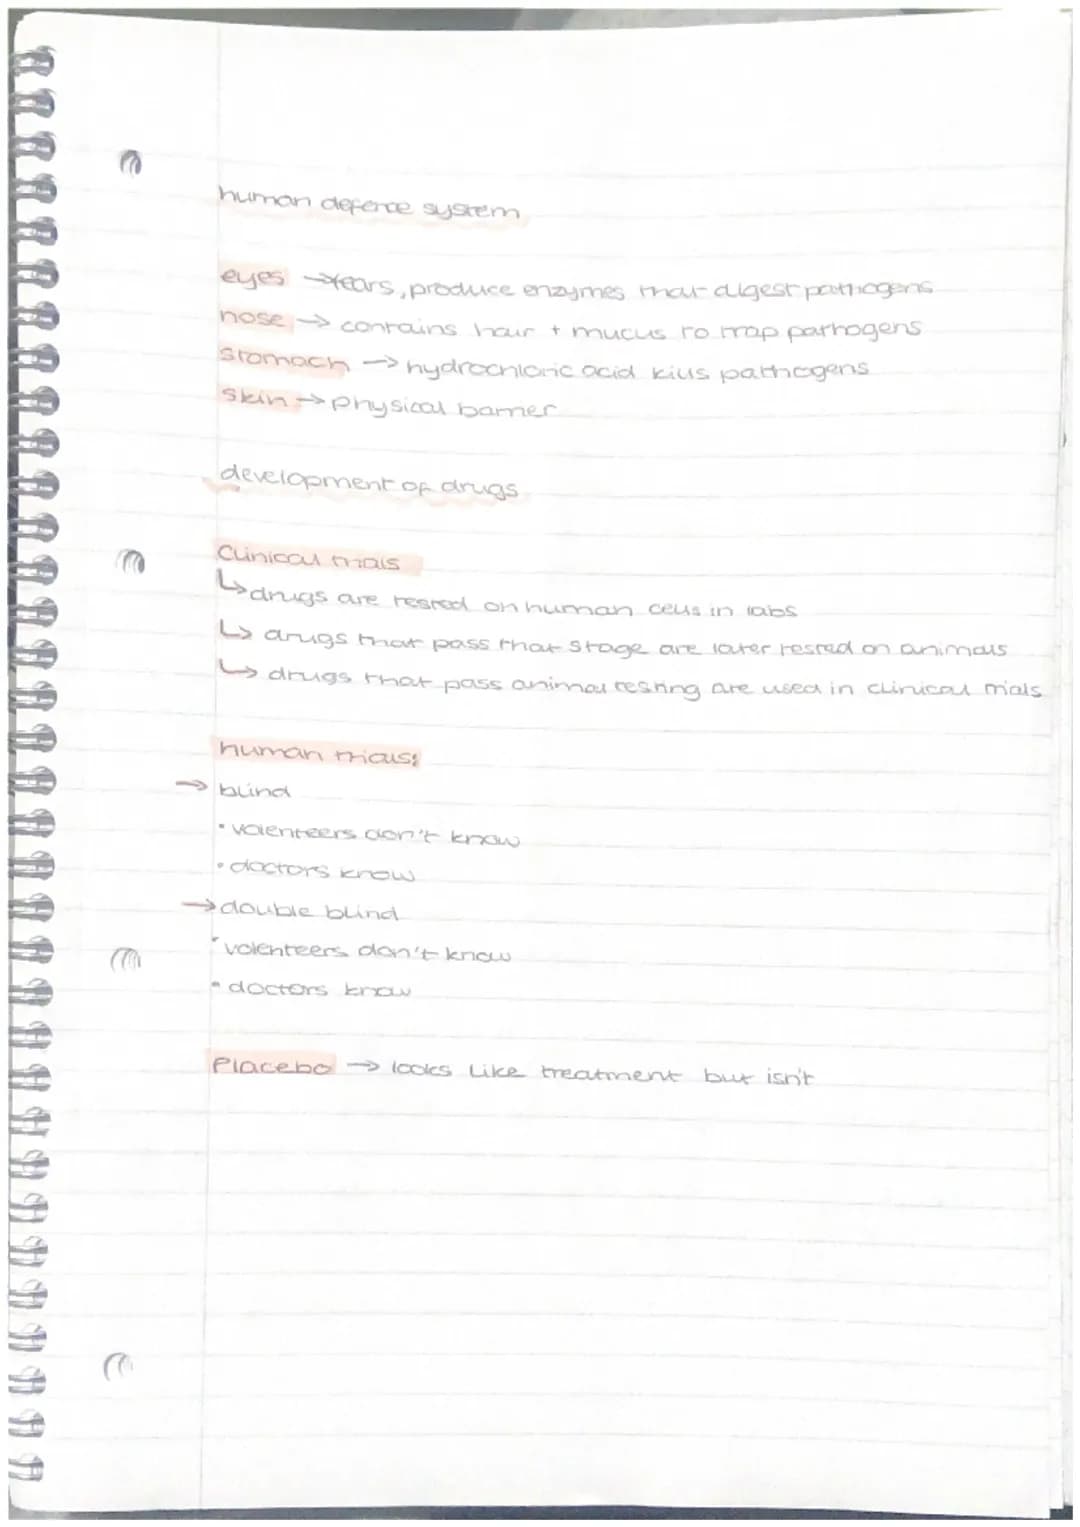 human defence system
eyes → tears, produce enzymes that digest pathogens
nose → contains hair + mucus to trap pathogens
stomach → hydrochloric acid kills pathogens
skin → physical barrier
development of drugs
Clinical trials
↳ drugs are tested on human cells in labs
↳ drugs that pass that stage are later tested on animals
↳ drugs that pass animal testing are used in clinical trials
human trials:
→ blind
• volenteers don't know
• doctors know
→ double blind
• volenteers don't know
• doctors know
Placebo → looks like treatment but isn't